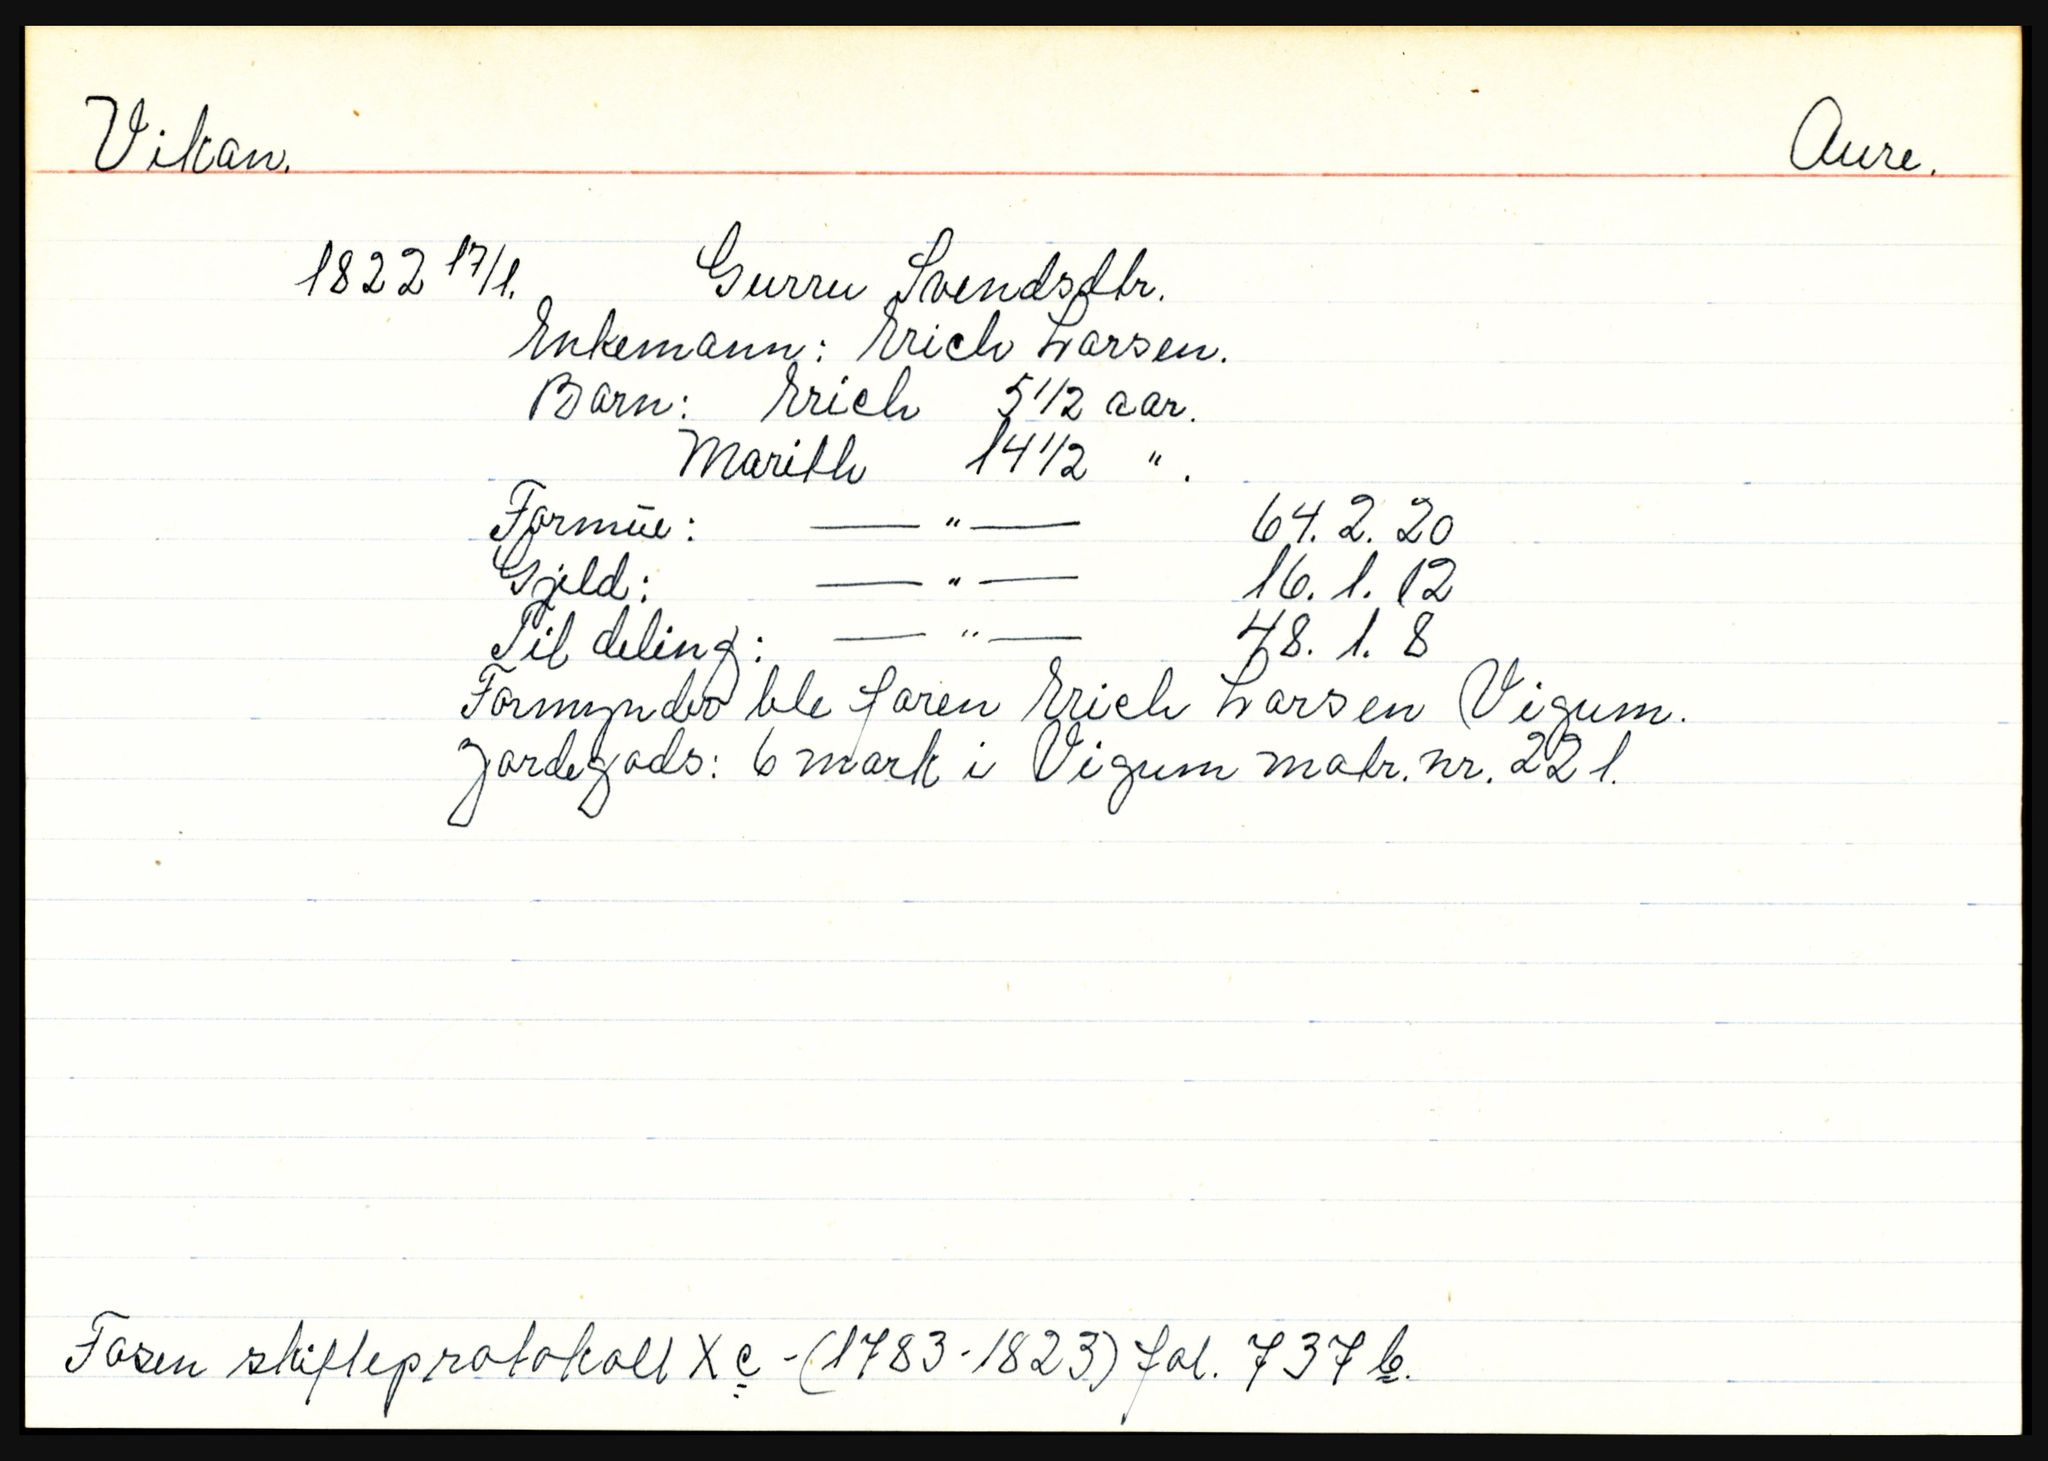 Vikan. Aure.
1822 17/1. Gurru Svendsdtr.
Enkemann: Erich Larsen.
Barn: Erich 5 1/2 aar.
Marith 14 1/2 " .
Formüe: — " — 64. 2. 20
Gjeld: — " — 16. 1. 12
Til deling: — " — 48. 1. 8
Formynder ble faren Erich Larsen Vigum.
Jordegods: 6 mark i Vigum matr. nr. 221.
Fosen skifteprotokoll X c - (1783-1823) fol. 737 b.